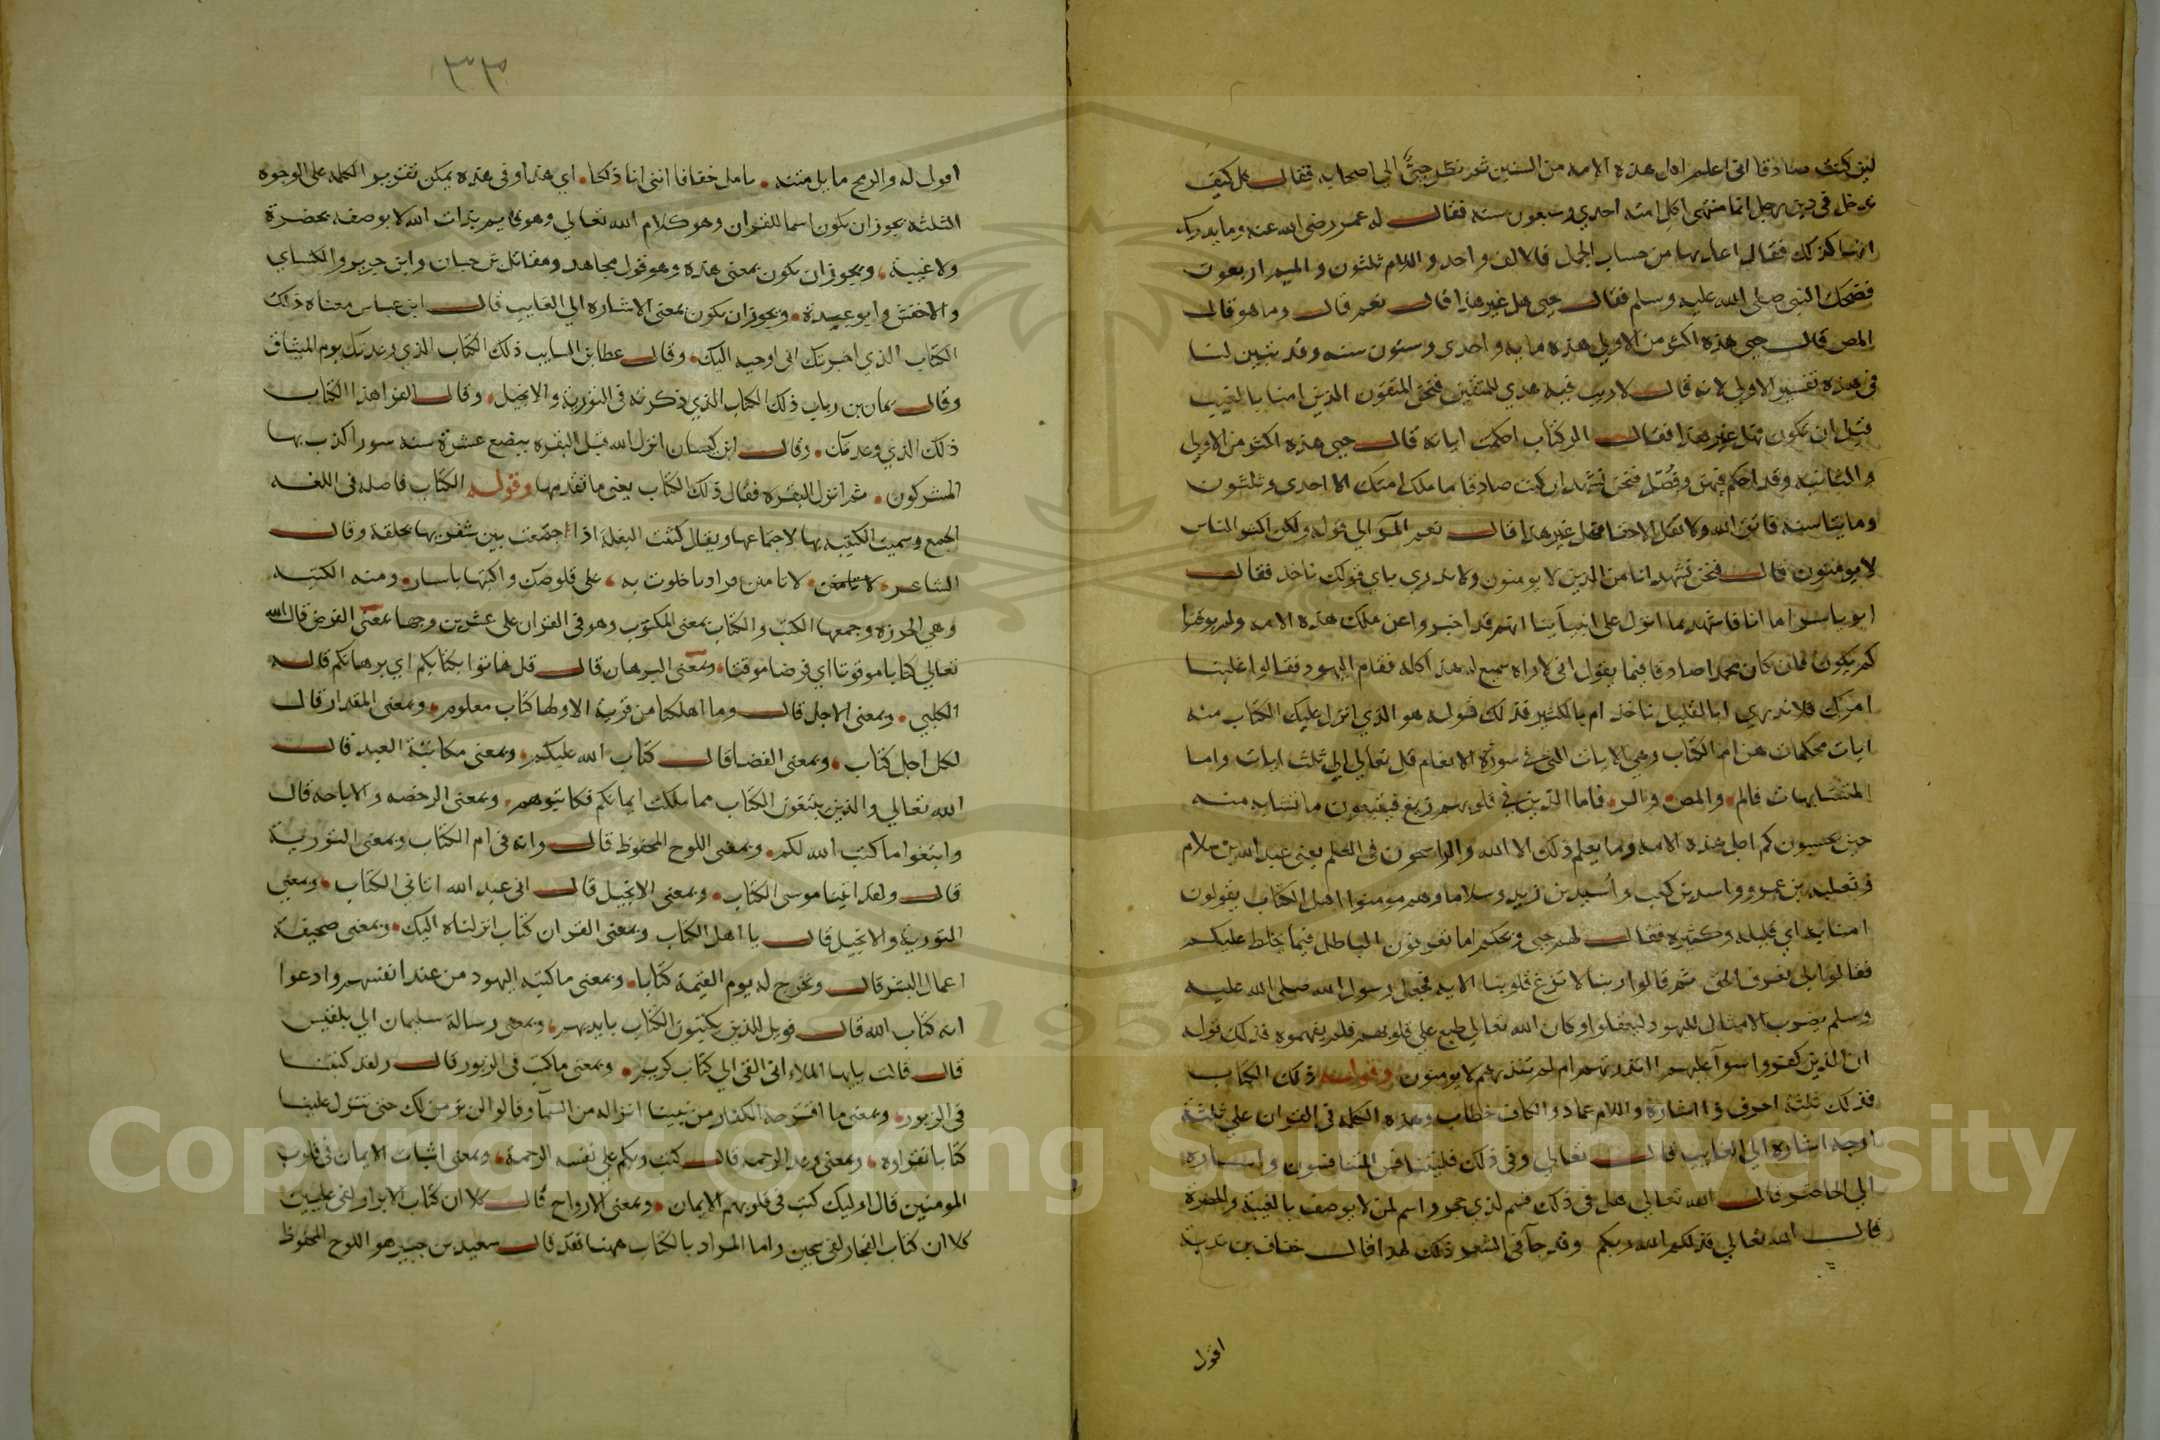 لين كنت صادقا انى اعلم اهل هذه الامه من السنين ثم نظر حيى الى اصحابه فقال كيف
ندخل فى دين رجل انما منتهى اكل امته احدي وسبعون سنه فقال له عمر رضى الله عنه وما يدريك
انها كذلك فقال اعدها من حساب الجمل فالالف واحد واللام ثلثون والميم اربعون
فضحك النبى صلى الله عليه وسلم فقال حيى هل غير هذا قال نعم قال وما هو قال
المص قال حيى هذه اكثر من الاولي هذه مايه واحدى وستون سنه وقد تبين لنا
فى هذه تفسير الاولى لانه قال لا ريب فيه هدي للمتقين فنحن المتقون الذين امنا بالغيب
قبل ان تكون فهل غير هذا فقال الر كتاب احكمت اياته قال حيى هذه اكثر من الاولي
والثانية وقد احكم فيهن وفصل فنحن نشهد ان كنت صادقا ما ملك امتك الا احدى وثلثون
ومايتا سنه فاتق الله ولا تقل الا حقا فهل غير هذا قال نعم المر الي قوله ولكن اكثر الناس
لا يومنون قال فنحن نشهد انا من الذين لا يومنون ولا ندري باي قولك ناخذ فقال
ابو ياسر اما انا فاشهد بما انزل على انبيآينا انهم قد اخبروا عن ملك هذه الامه ولم يوقتوا
كم يكون فان كان محمد صادقا فيما يقول انى لاراه سيجمع له هذا كله فقام اليهود فقالوا اشتبه علينا
امرك فلا ندري ابالقليل ناخذ ام بالكثير فذلك قوله هو الذي انزل عليك الكتاب منه
ايات محكمات هن ام الكتاب وهي الايات التى فى سورة الانعام قل تعالي الي ثلث ايات واما
المتشابهات فالم والمص والر فاما الذين في قلوبهم زيغ فيتبعون ما تشابه منه
حين يحسبون كم اجل هذه الامه وما يعلم ذلك الا الله والراسخون فى العلم يعنى عبد الله بن سلام
وثعلبه بن عمرو واسد بن كعب واسيد بن زيد وسلاما وهم مومنوا اهل الكتاب يقولون
امنا به اي بقليله وكثيره فقال لهم حيى ويحكم اما تعرفون الباطل فيما خلط عليكم
فقالوا بلى نعرف الحق ثم قالوا ربنا لا تزغ قلوبنا الايه فجعل رسول الله صلى الله عليه
وسلم يضرب الامثال لليهود ليعقلوا وكان الله تعالي طبع علي قلوبهم فلم يفهموه فذلك قوله
ان الذين كفروا سوآ عليهم اانذرتهم ام لم تنذرهم لا يومنون وقوله ذلك الكتاب
فذلك ثلثة احرف ذا اشارة واللام عماد والكاف خطاب وهذه الكلمة فى القران علي ثلثة
اوجه اشارة الي الغايب قال تعالي وفى ذلك فليتنافس المتنافسون واشاره
الي الحاضر قال الله تعالى هل فى ذلك قسم لذي حجر واسم لمن لا يوصف بالغيبة والحضرة
قال الله تعالي فذلكم الله ربكم وقد جآ فى الشعر ذلك لهذا قال خفاف بن ندبة
اقول
٣٣
اقول له والرمح ما بل متنه . تامل خفافا اننى انا ذلكا . اي هذا وفى هذه يمكن تقرير الكلمه على الوجوه
الثلثه يجوز ان تكون اسما للقران وهو كلام الله تعالي وهو قايم بذات الله لا يوصف بحضرة
ولا غيبة ، ويجوز ان يكون بمعنى هذه وهو قول مجاهد ومقاتل بن حيان وابن جرير والكساي
والاخفش وابو عبيدة . ويجوز ان يكون بمعنى الاشاره الي الغايب قال ابن عباس معناه ذلك
الكتاب الذي اخبرتك انى اوحيه اليك . وقال عطا بن السايب ذلك الكتاب الذي وعدتك يوم الميثاق
وقال يمان بن رياب ذلك الكتاب الذي ذكرته فى التورية والانجيل . وقال الفرا هذا الكتاب
ذلك الذي وعدتك . وقال ابن كيسان انزل الله قبل البقره ببضع عشرة سنه سورا كذب بها
المشركون . ثم انزل البقره فقال ذلك الكتاب يعنى ما تقدمها وقوله الكتاب فاصله فى اللغه
الجمع وسميت الكتيبه بها لاجتماعها ويقال كتبت البغلة اذا اجتمعت بين شفريها بحلقة وقال
الشاعر . لا تامنن فزاريا خلوت به ، على قلوصك واكتبها باسيار . ومنه الكتبه
وهي الخرزه وجمعها الكتب والكتاب بمعنى المكتوب وهو فى القران على عشرين وجها بمعنى الفرض قال الله
تعالي كتابا موقوتا اي فرضا موقتا . وبمعنى البرهان قال قل فاتوا بكتابكم اي برهانكم قاله
الكلبي . وبمعنى الاجل قال وما اهلكنا من قرية الا ولها كتاب معلوم . وبمعنى المقدار قال
لكل اجل كتاب . وبمعنى القضا قال كتاب الله عليكم . وبمعنى مكاتبة العبد قال
الله تعالي والذين يبتغون الكتاب مما ملكت ايمانكم فكاتبوهم . وبمعنى الرخصه والاباحه قال
وابتغوا ما كتب الله لكم . وبمعنى اللوح المحفوظ قال وانه فى ام الكتاب وبمعنى التورية
قال ولقد اتينا موسى الكتاب . وبمعنى الانجيل قال انى عبد الله اتانى الكتاب . وبمعنى
التورية والانجيل قال يا اهل الكتاب وبمعنى القران كتاب انزلناه اليك . وبمعنى صحيفة
اعمال البشر قال ونخرج له يوم القيمة كتابا . وبمعنى ما كتبه اليهود من عند انفسهم وادعوا
انه كتاب الله قال فويل للذين يكتبون الكتاب بايديهم . وبمعنى رسالة سليمان الي بلقيس
قال قالت يايها الملاء انى القى الي كتاب كريم . وبمعنى ما كتب فى الزبور قال ولقد كتبنا
فى الزبور . وبمعنى ما اقترحه الكفار من نبينا انزاله من السمآ وقالوا لن نومن لك حتى تنزل علينا
كتابا نقراوه . وبمعنى وعد الرحمه قال كتب ربكم على نفسه الرحمة . وبمعنى اثبات الايمان فى قلوب
المومنين قال اوليك كتب فى قلوبهم الايمان . وبمعنى الارواح قال كلا ان كتاب الابرار لفى عليين
كلا ان كتاب الفجار لفى سجين واما المراد بالكتاب ههنا فقد قال سعيد بن جبير هو اللوح المحفوظ
1957
Copyright © King Saud University